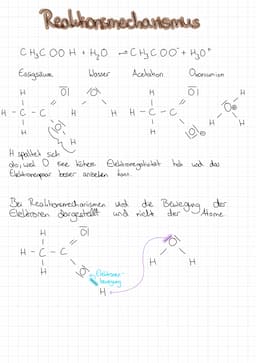 Reaktionsmechanismus
CH₃COOH + H₂O → CH₃COO⁻ + H₃O⁺
Essigsäure Wasser Acetation Oxonium
H O H
H - C - C O H H H - C - C O H O H ⊕
H O H O ⊖ H
H
H spaltet sich
ab, weil O eine höhere Elektronegativität hat und das
Elektronenpaar besser anziehen kann.
Bei Reaktionsmechanismen wird die Bewegung der
Elektronen dargestellt und nicht der Atome
H O O
H - C - C H H
H O Elektronen-
bewegung
H